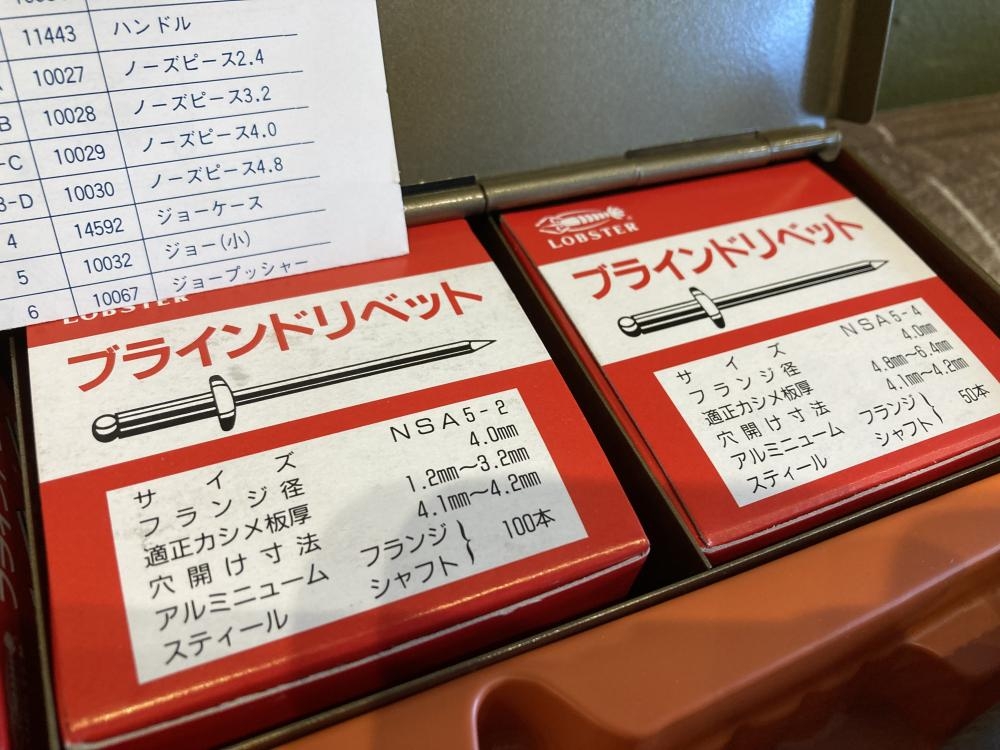 11443 ハンドル
10027 ノーズピース2.4
B 10028 ノーズピース3.2
-C 10029 ノーズピース4.0
3-D 10030 ノーズピース4.8
4 14592 ジョーケース
5 10032 ジョー(小)
6 10067 ジョープッシャー
LOBSTER
ブラインドリベット
サイズ NSA5-2
フランジ径 4.0mm
適正カシメ板厚 1.2mm〜3.2mm
穴開け寸法 4.1mm〜4.2mm
アルミニューム フランジ
スティール シャフト } 100本
LOBSTER
ブラインドリベット
サイズ NSA5-4
フランジ径 4.0mm
適正カシメ板厚 4.8mm〜6.4mm
穴開け寸法 4.1mm〜4.2mm
アルミニューム フランジ
スティール シャフト } 50本